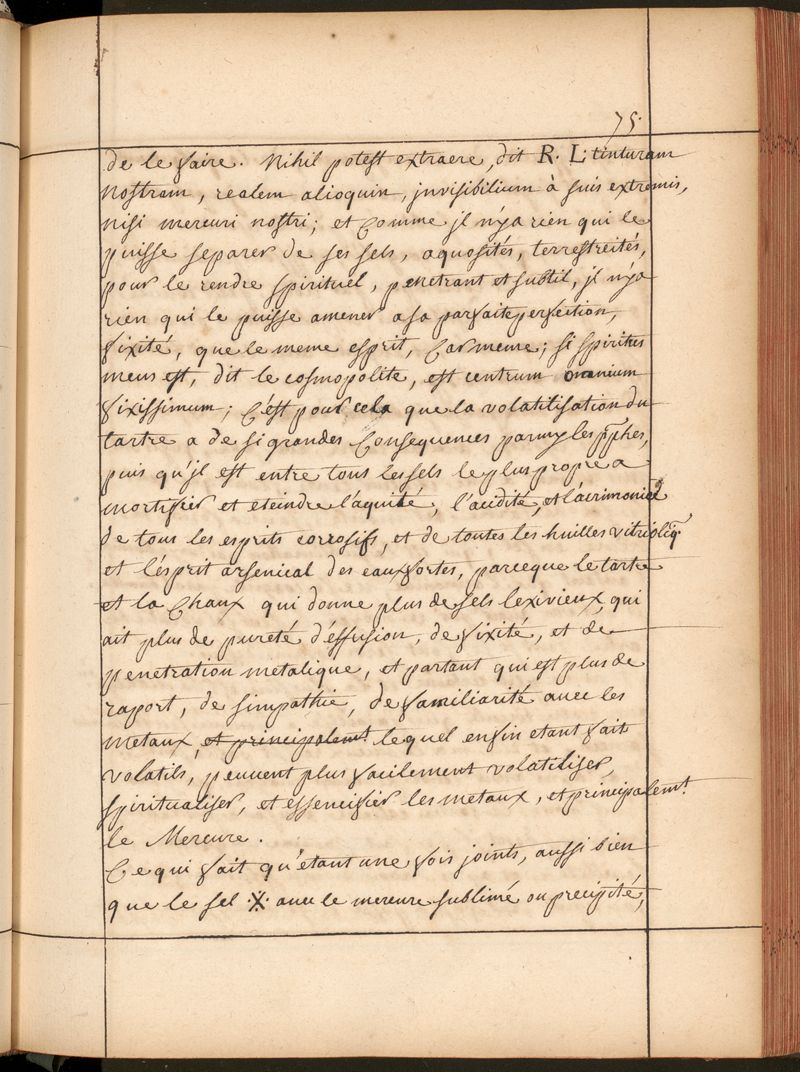 75.
de le faire. Nihil potest extraere, dit R. L. tinturam
nostram, realem alioquin, jnvisibilium à suis extremis,
nisi mercuri nostri; et comme jl n'ya rien qui le
puisse separer de ses sels, aquosités, terrestreités,
pour le rendre spirituel, penetrant et subtil, jl n'ya
rien qui le puisse amener a sa parfaite perfection,
fixité, que le meme esprit, car meme; si spiritus
meus est, dit le cosmopolite, est centrum omnium
fixissimum; c'est pour cela que la volatilisation du
tartre a de si grandes consequences parmy les pphes,
puis qu'jl est entre tous les sels le plus propre a
mortifier et eteindre l'aquité, l'acidité, et l'acrimonie
de tous les esprits corrosifs, et de toutes les huilles vitrioliq.
et l'ésprit arsenical des eaux fortes, parceque le tartre
et la chaux qui donne plus de sels lexivieux, qui
ait plus de pureté d'éffusion, de fixité, et de
penetration metalique, et partant qui est plus de
raport, de simpathie, de familiarité auec les
metaux, et principalemt. lequel enfin etant fait
volatils, peuuent plus facilement volatiliser,
spiritualiser, et essencifier les metaux, et principalemt.
le Mercure.
Ce qui fait qu'etant une fois joints, aussi bien
que le sel .X. auec le mercure sublimé ou precipité,